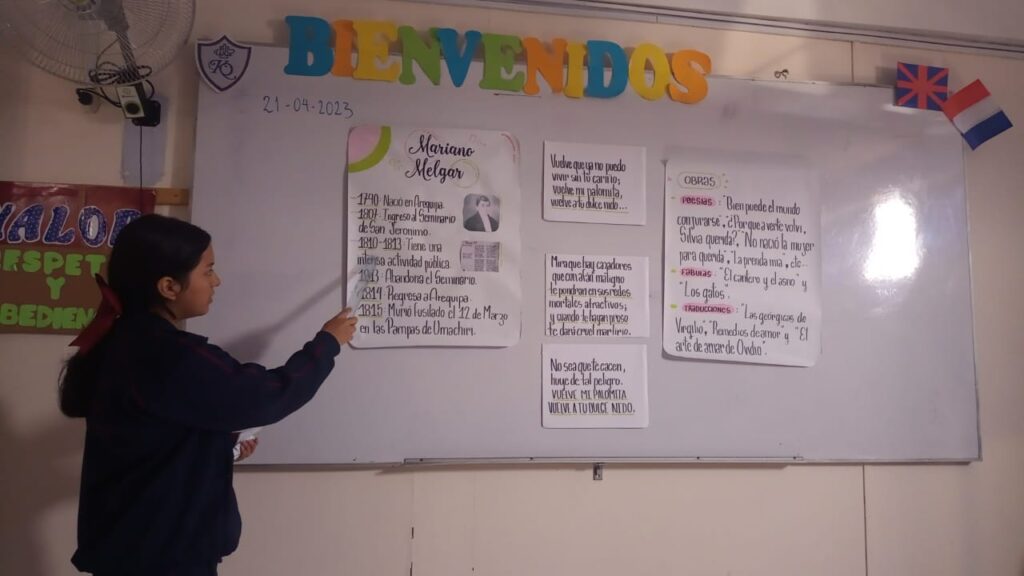 BIENVENIDOS
21-04-2023
VALOR
RESPETO
Y
OBEDIEN
Mariano
Melgar
1790: Nació en Arequipa.
1807: Ingresó al Seminario
de San Jerónimo.
1810-1813: Tiene una
intensa actividad pública.
1813: Abandona el Seminario.
1814: Regresa a Arequipa.
1815: Murió fusilado el 12 de Marzo
en las Pampas de Umachiri.
Vuelve que ya no puedo
vivir sin tu cariño;
vuelve mi palomita,
vuelve a tu dulce nido...
Mira que hay cazadores
que con afán maligno
te pondrán en sus redes
mortales atractivos;
y cuando te hayan preso
te darán cruel martirio.
No sea que te cacen,
huye de tal peligro.
VUELVE MI PALOMITA
VUELVE A TU DULCE NIDO.
OBRAS
POESÍAS: "Bien puede el mundo
conjurarse", ¿Por qué a verte volví,
Silvia querida?", "No nació la mujer
para querida", "La prenda mía", etc...
FÁBULAS: "El cantero y el asno" y
"Los gatos".
TRADUCCIONES: "Las geórgicas de
Virgilio", "Remedios de amor" y "El
arte de amar de Ovidio".